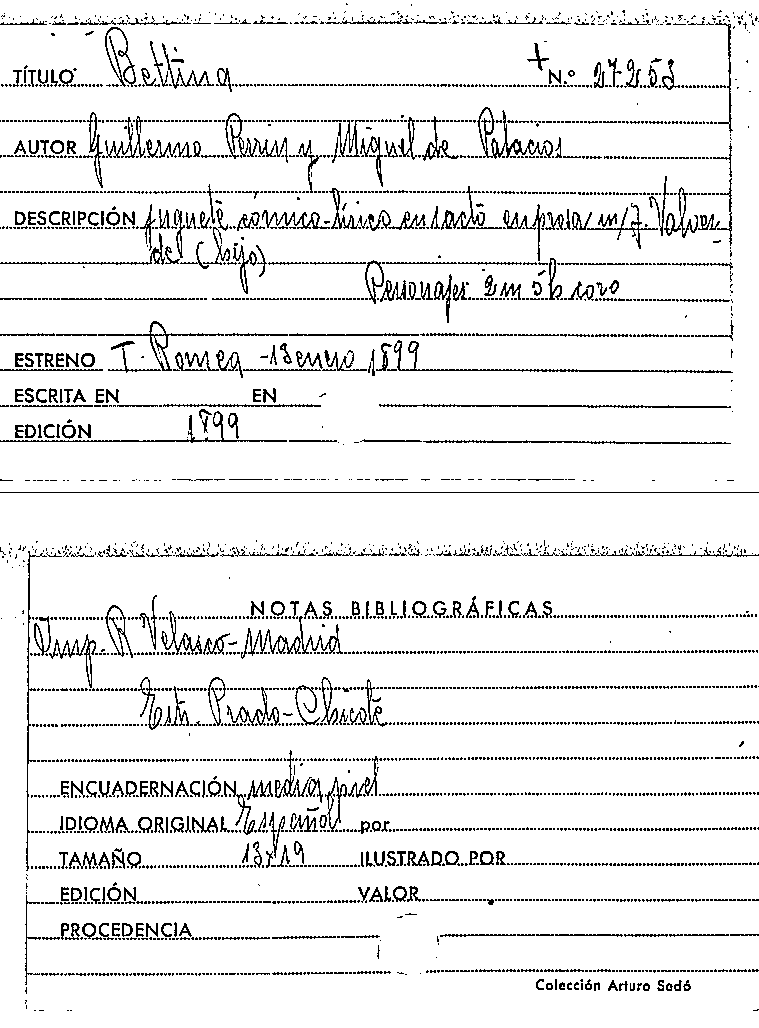 TÍTULO Bettina + N.º 27253
AUTOR Guillermo Perrin y Miguel de Palacios
DESCRIPCIÓN juguete cómico-lírico en 1 acto en prosa m/ J. Valver-
de (hijo)
Personajes 2m 5h coro
ESTRENO T. Romea - 13 enero 1899
ESCRITA EN EN
EDICIÓN 1899
NOTAS BIBLIOGRÁFICAS
Imp. R Velasco - Madrid
Estr. Prado - Chicote
ENCUADERNACIÓN media piel
IDIOMA ORIGINAL Español por
TAMAÑO 13x19 ILUSTRADO POR
EDICIÓN VALOR
PROCEDENCIA
Colección Arturo Sedó